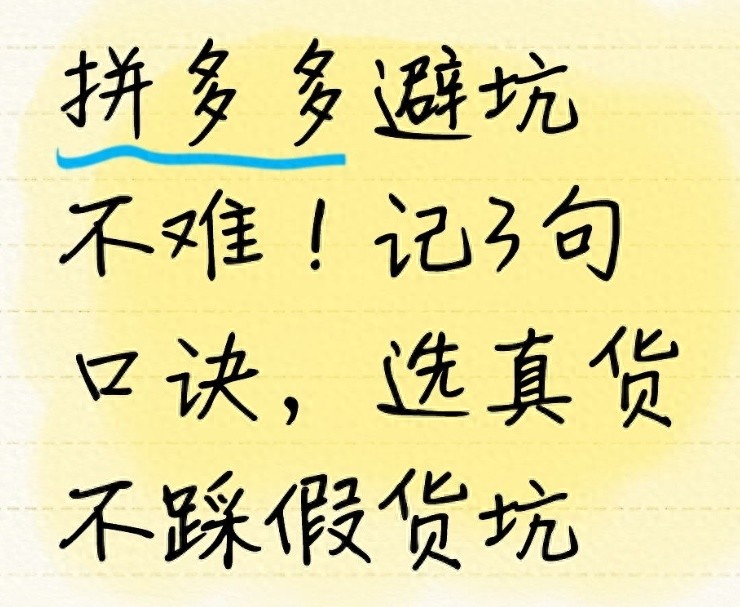 拼多多避坑
不难！记3句
口诀，选真货
不踩假货坑